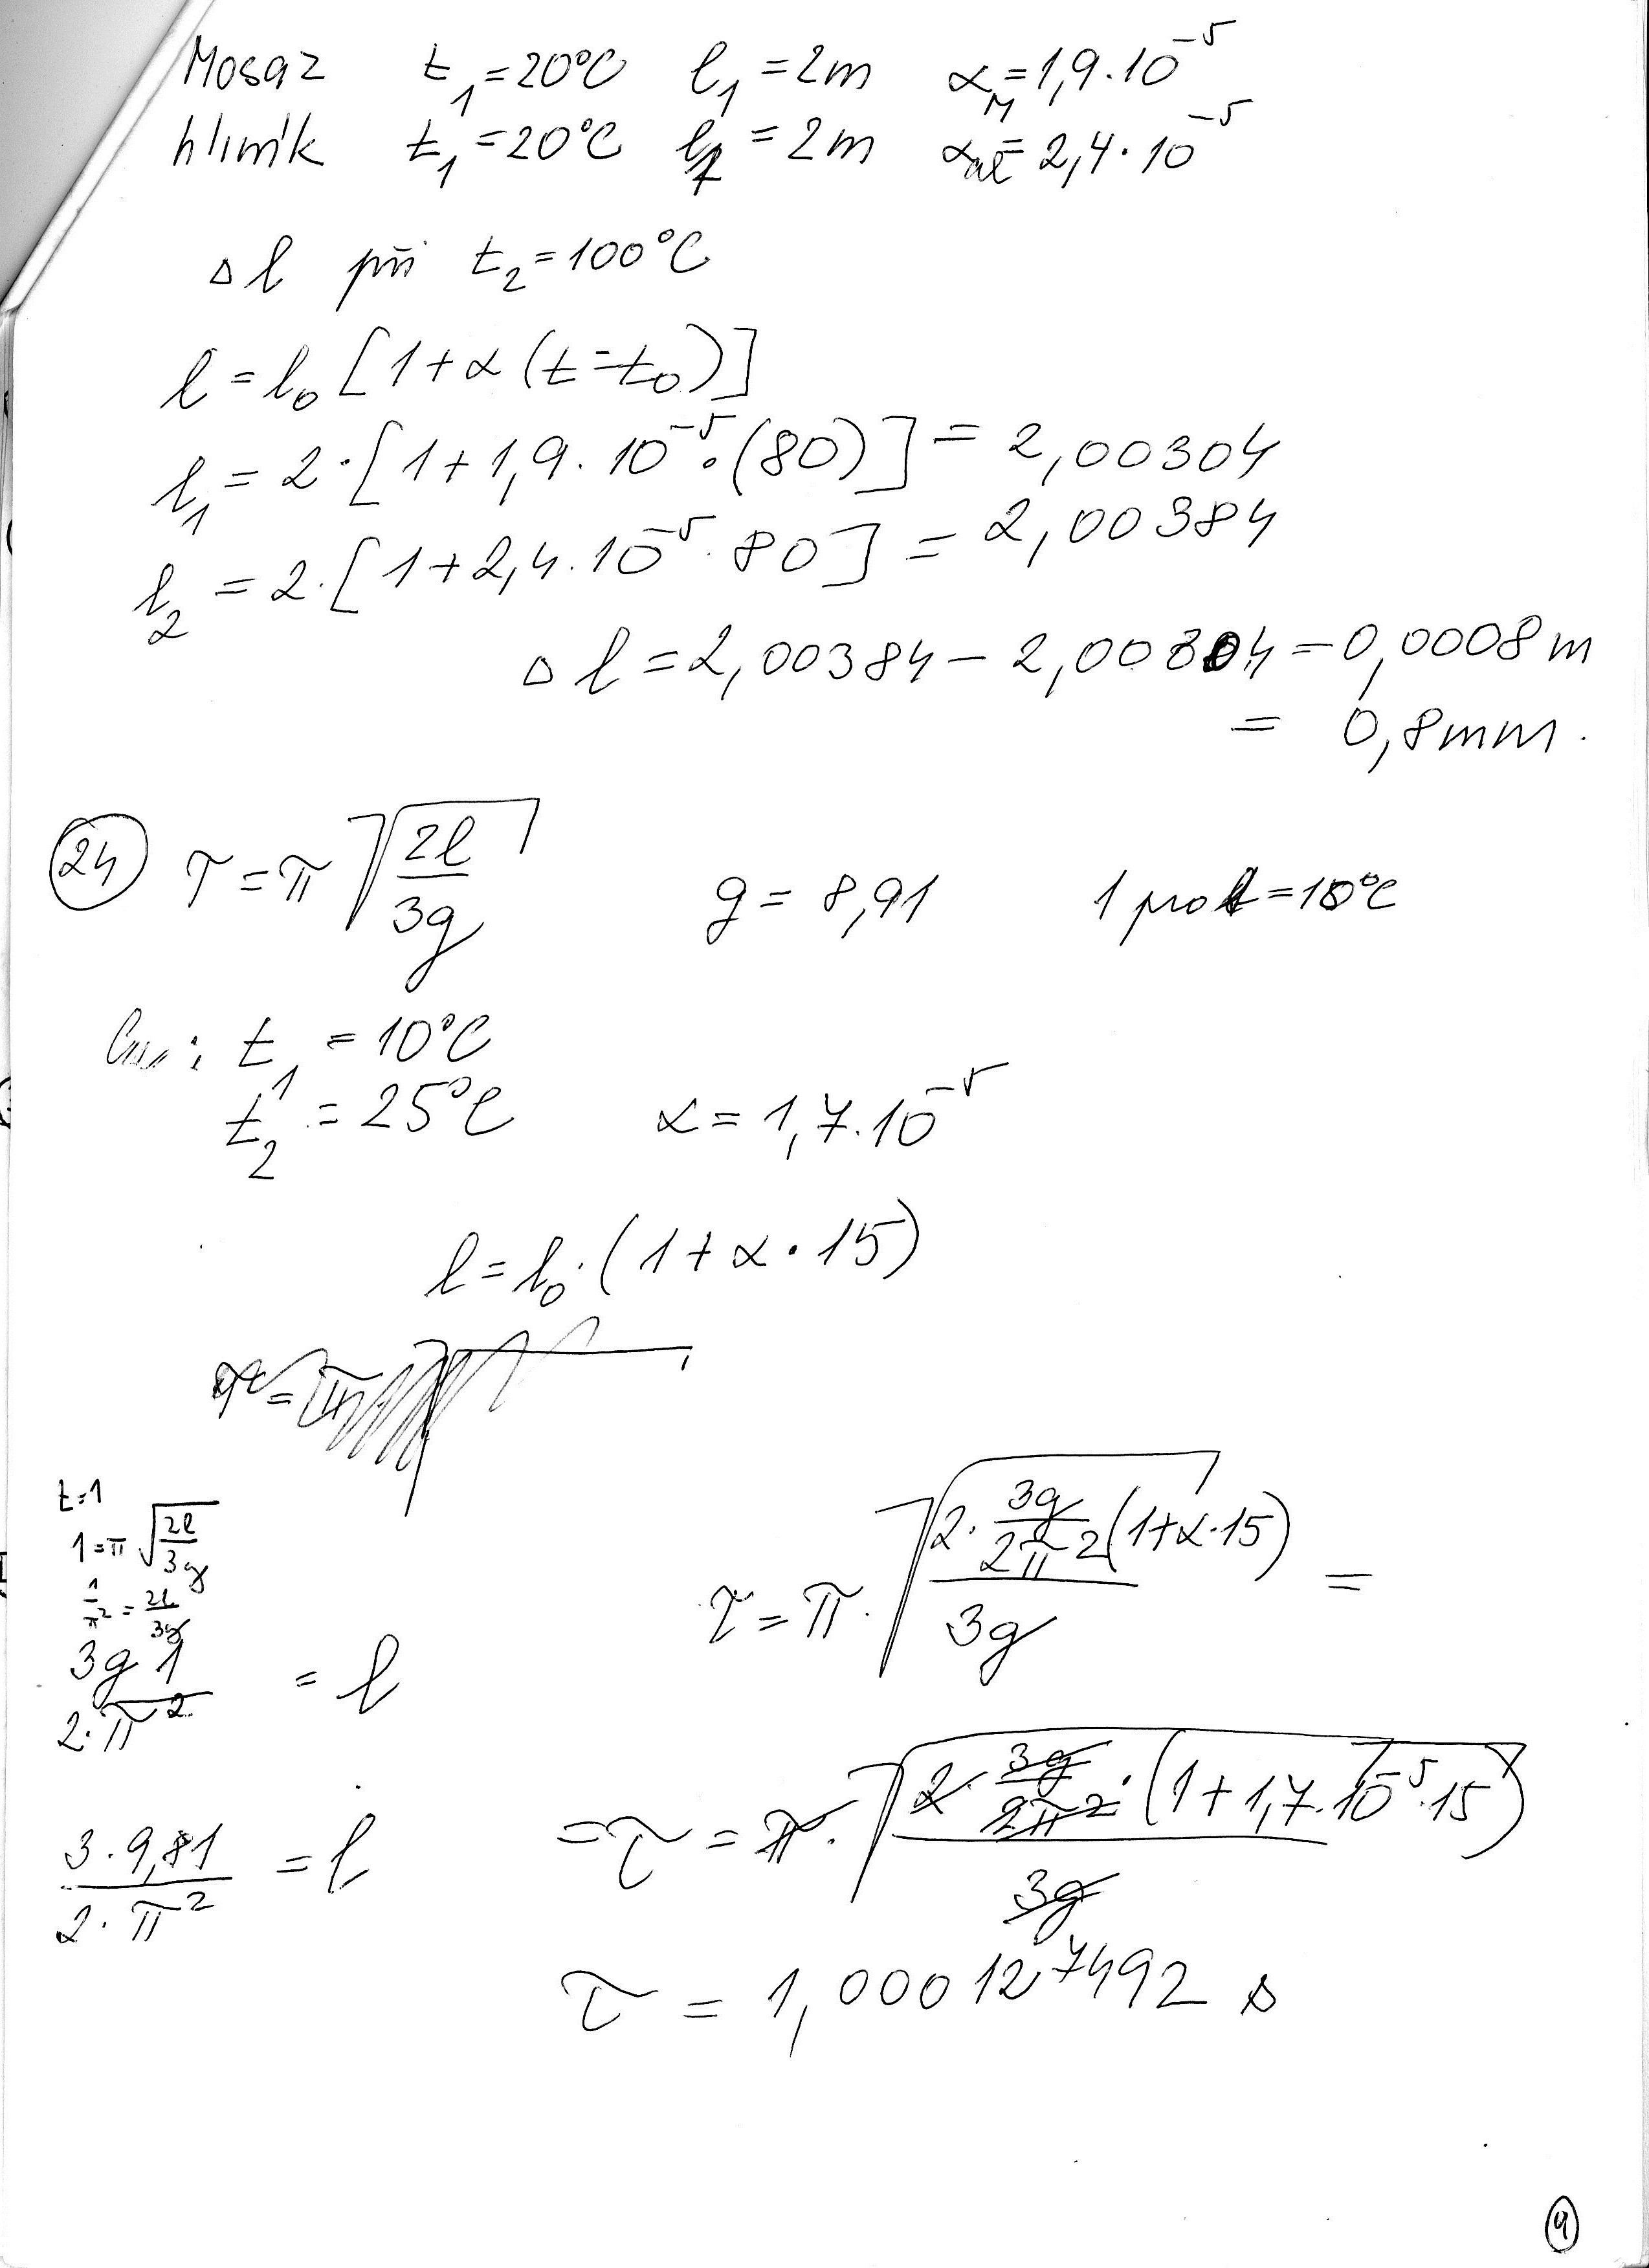 Mosaz t₁=20°C l₁=2m α_M=1,9·10⁻⁵
hliník t₁=20°C l₁=2m α_al=2,4·10⁻⁵
Δl při t₂=100°C
l=l₀[1+α(t-t₀)]
l₁=2·[1+1,9·10⁻⁵·(80)]=2,00304
l₂=2·[1+2,4·10⁻⁵·80]=2,00384
Δl=2,00384-2,00304=0,0008m
=0,8mm.
24 τ=π√(2l/3g) g=8,91 1 pro t=10°C
t₁=10°C
t₂=25°C α=1,7·10⁻⁵
l=l₀·(1+α·15)
t=1
1=π√(2l/3g)
1/π²=2l/3g
3g1/2·π²=l
τ=π·√(2·3g/2π²(1+α·15)/3g)=
=τ=π·√(2·3g/2π²·(1+1,7·10⁻⁵·15)/3g)
3·9,81/2·π²=l
τ=1,000127492 s
9